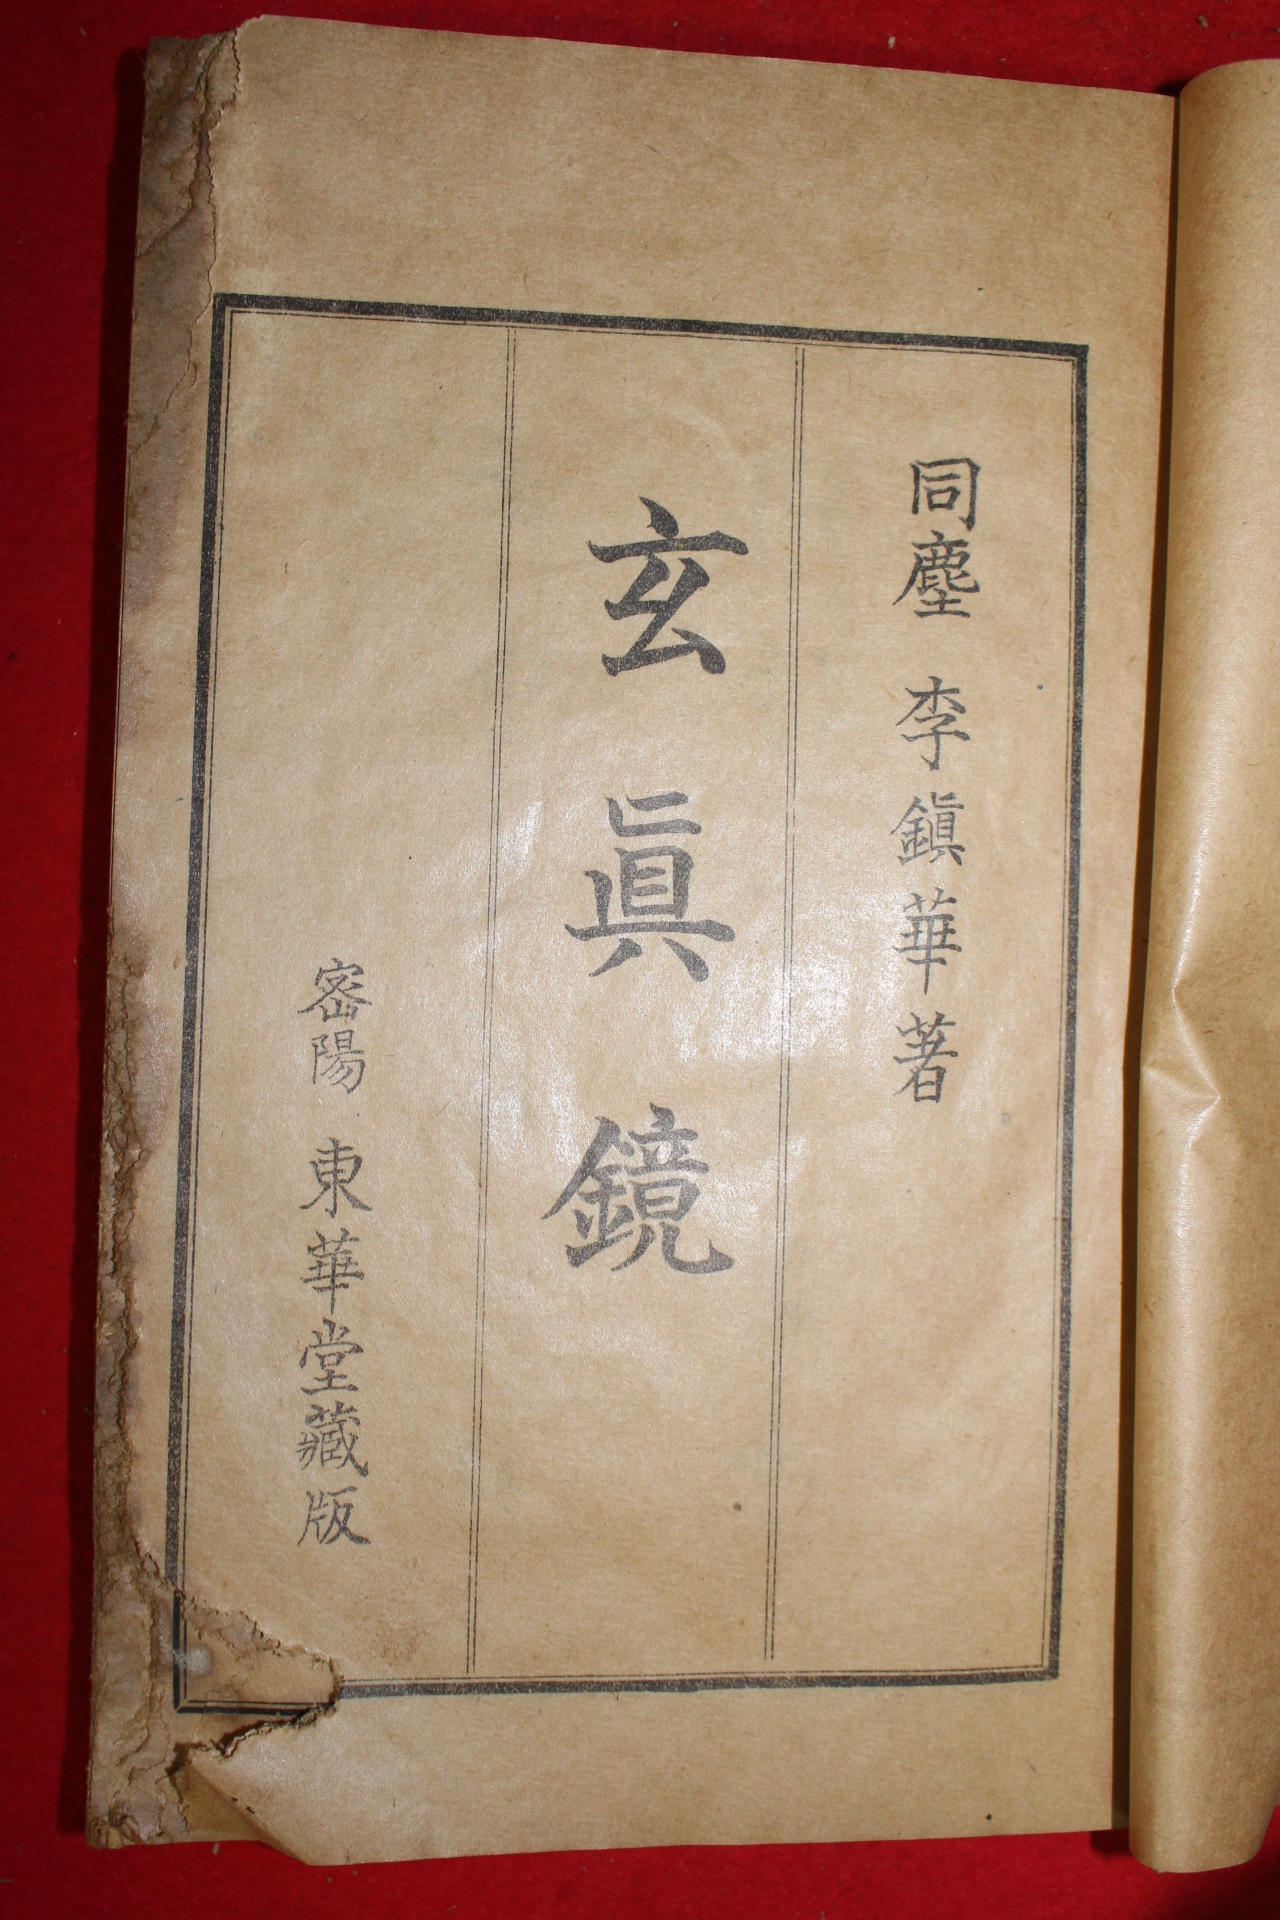 同塵 李鎭華著
玄眞鏡
密陽 東華堂藏版